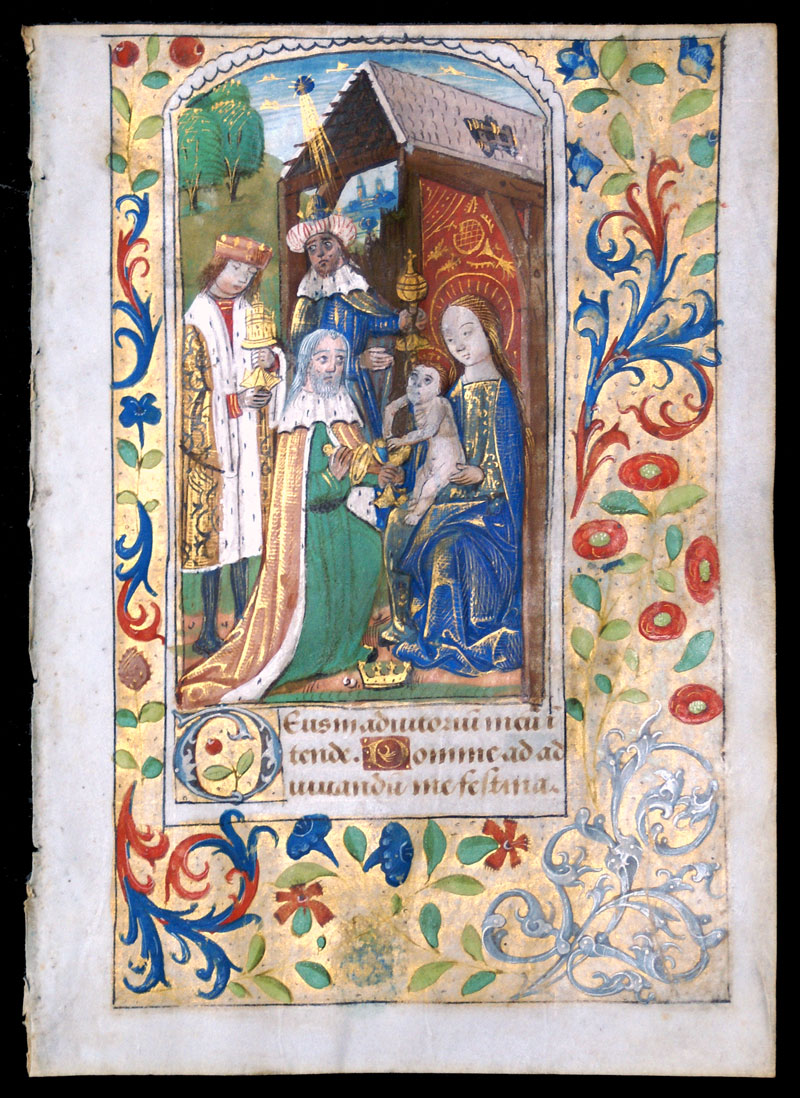 Deus in adiutoriũ meũ ĩ
tende. Domine ad ad
iuuandũ me festina.